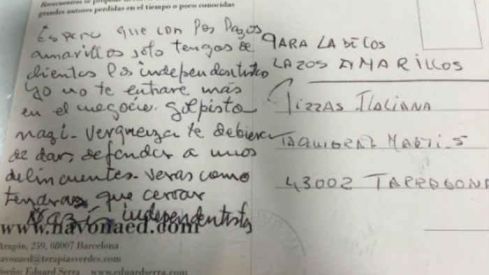 grandes autores perdidas en el tiempo o poco conocidas
Espero que con los lazos
amarillos solo tengas de
clientes los independentistas
yo no te entrare más
en el negocio. golpista
nazi. Verguenza te debiera
de dar, defender a unos
delincuentes. Veras como
tendras que cerrar
independentista
www.navonaed.com
Aragón, 259, 08007 Barcelona
navonaed@terapiasverdes.com
Eduard Serra www.eduardserra.com
PARA LA DE LOS
LAZOS AMARILLOS
PIZZAS ITALIANA
43002 TARRAGONA